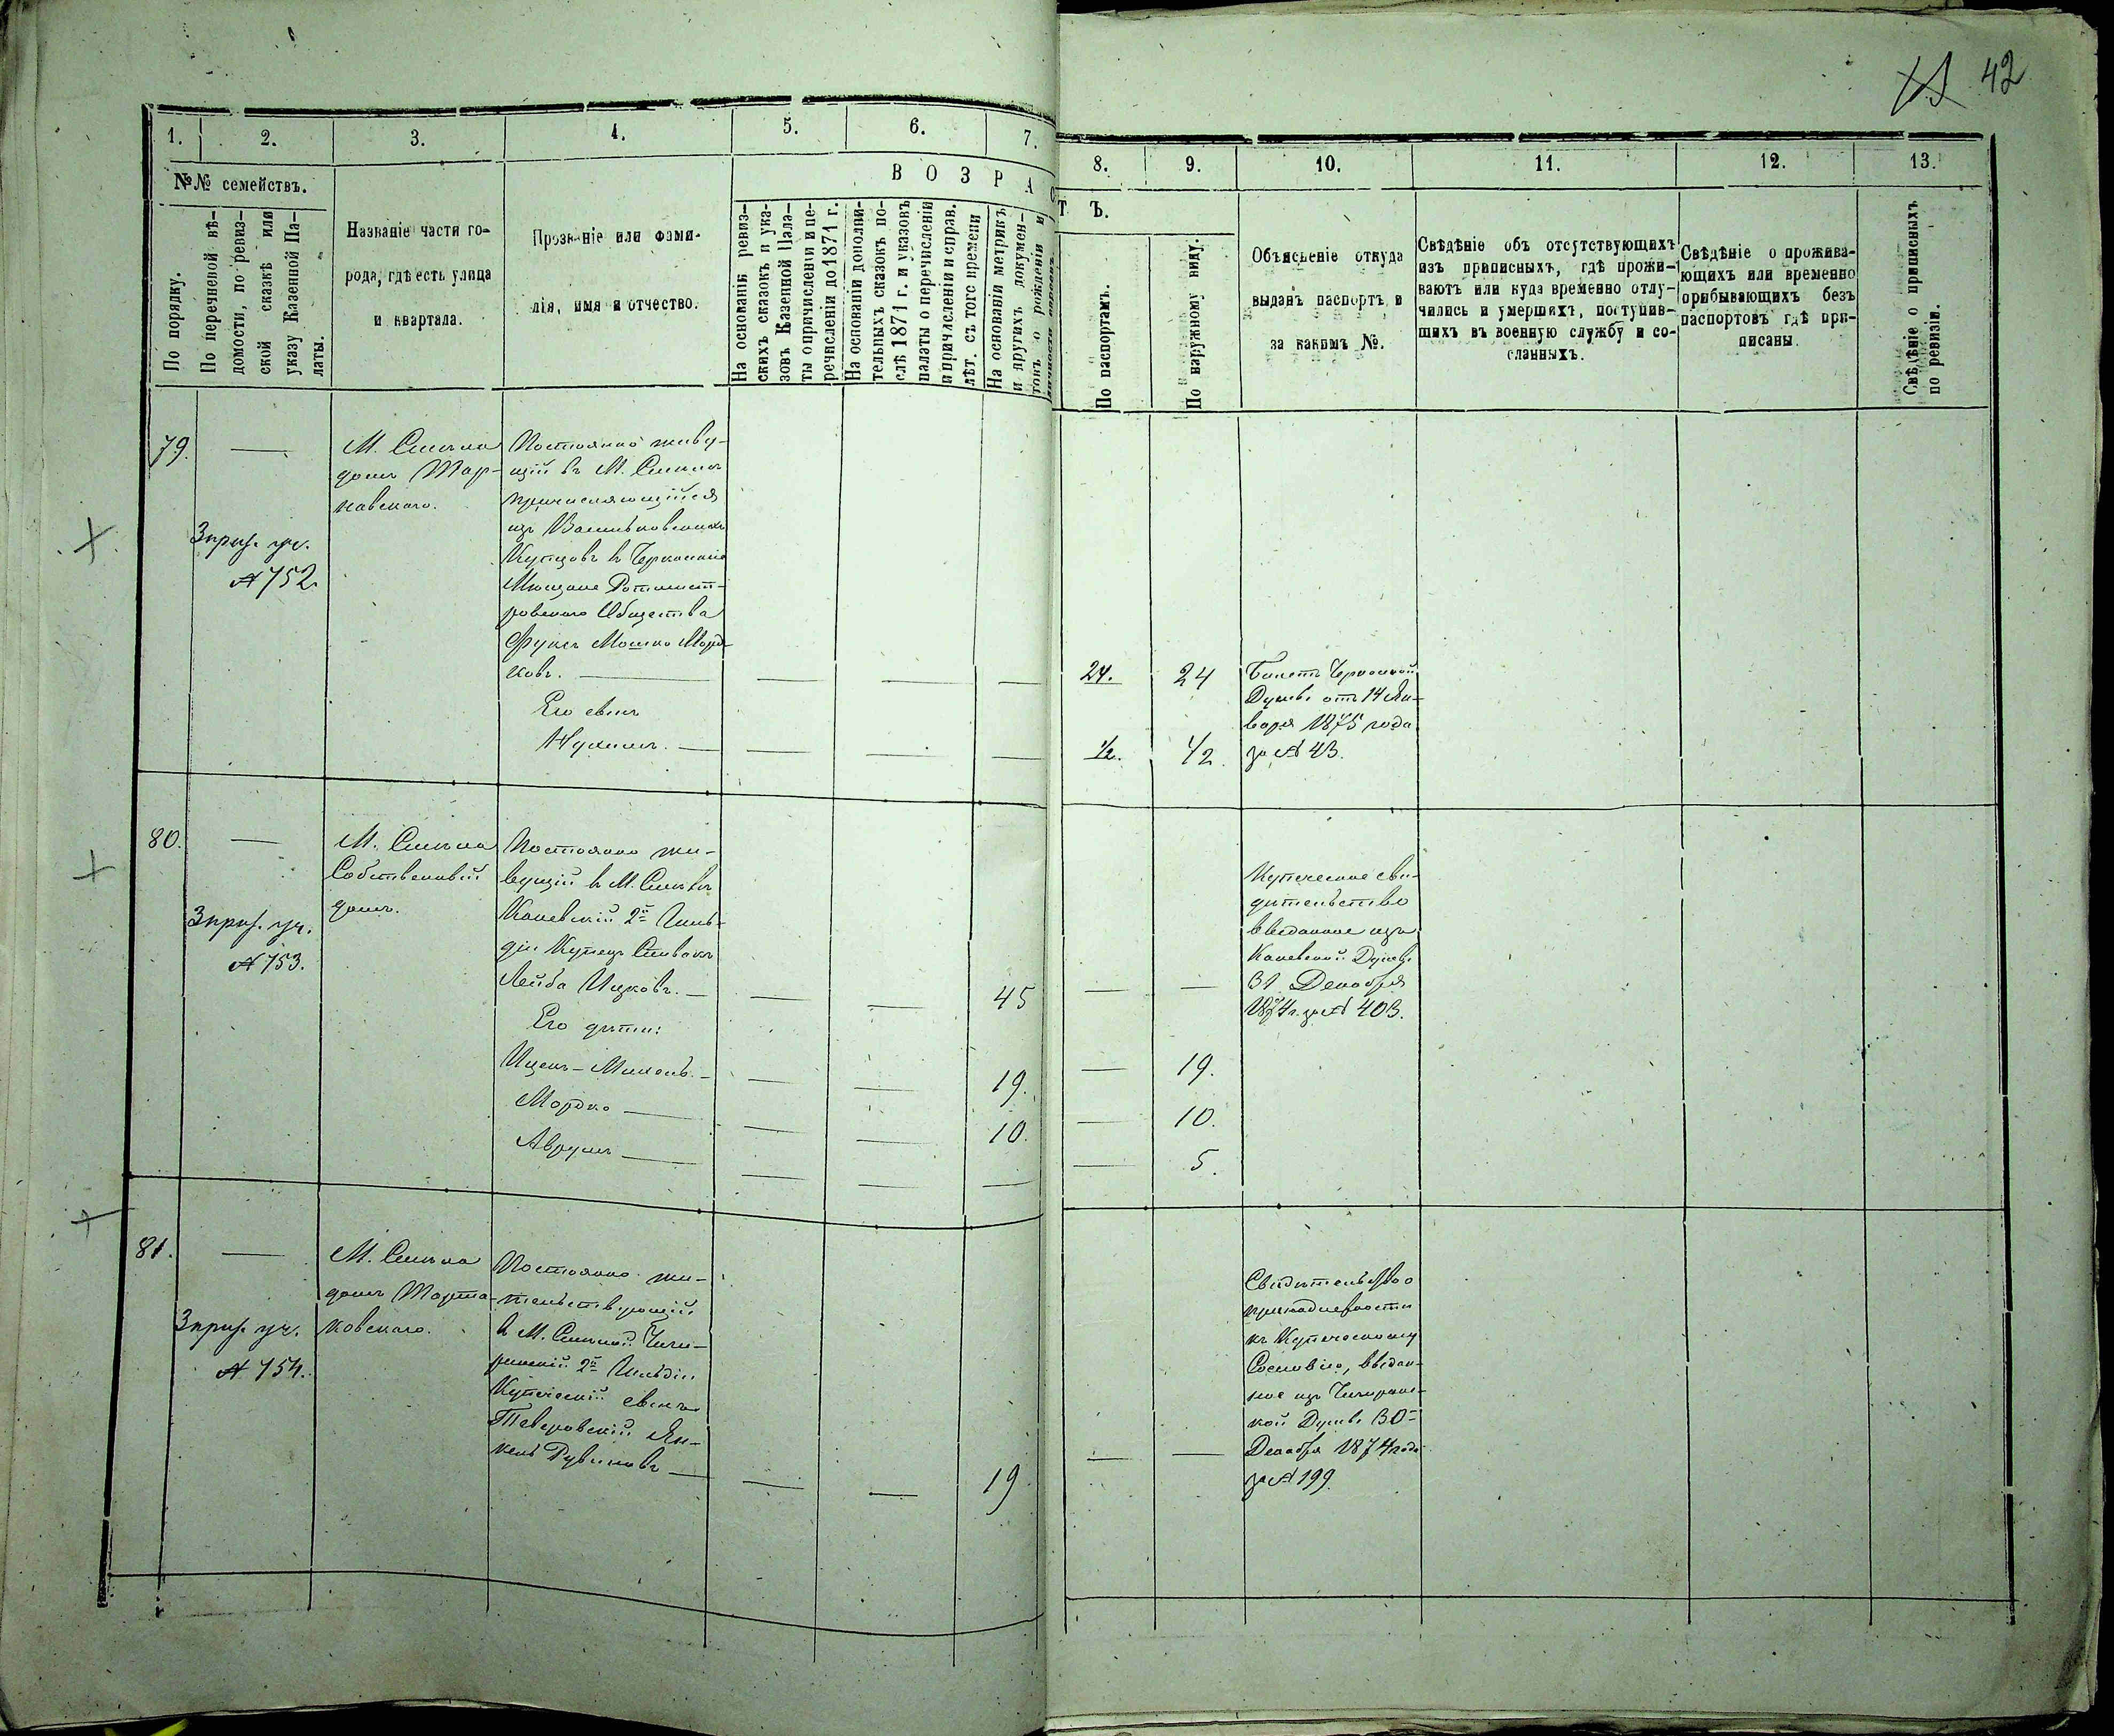 42
1.
2.
3.
4.
5.
6.
7.
8.
9.
10.
11.
12.
13.
№№ семействъ.
По порядку.
По перечневой вѣ-
домости, по ревиз-
ской сказкѣ или
указу Казенной Па-
латы.
Названіе части го-
рода, гдѣ есть улица
и квартала.
Прозваніе или фами-
лія, имя и отчество.
ВОЗРАСТЪ.
На основаніи ревиз-
скихъ сказокъ и ука-
зовъ Казенной Пала-
ты о причисленіи и пе-
речисленіи до 1871 г.
На основаніи дополни-
тельныхъ сказокъ по-
слѣ 1871 г. и указовъ
палаты о перечисленіи
и причисленіи и справ.
лѣт. съ того времени
На основаніи метрикъ
и другихъ докумен-
товъ о рожденіи и
По паспортамъ.
По наружному виду.
Объясненіе откуда
выданъ паспортъ и
за какимъ №.
Свѣдѣніе объ отсутствующихъ
изъ приписныхъ, гдѣ прожи-
ваютъ или куда временно отлу-
чились и умершихъ, поступив-
шихъ въ военную службу и со-
сланныхъ.
Свѣдѣніе о прожива-
ющихъ или временно
прибывающихъ безъ
паспортовъ гдѣ при-
писаны.
Свѣдѣніе о приписныхъ
по ревизіи.
79.
3 приз. уч.
№ 752.
М. Смѣла
домъ
Постоянно живу-
щій въ М. Смѣлѣ
причисляющійся
изъ Васильковскихъ
Купцовъ въ Черкаскіе
Мѣщане Ротмист-
ровскаго Общества
Фуксъ Мошко Морд-
ковъ.
24.
24
Его сынъ
Нухимъ.
1/2.
1/2.
Билетъ Черкаской
Думы отъ 14 Ян-
варя 1875 года
за № 43.
80.
3 приз. уч.
№ 753.
М. Смѣла
Собственный
домъ.
Постоянно жи-
вущій въ М. Смѣлѣ
Каневскій 2й Гиль-
діи Купецъ Спивакъ
Лейба Ицковъ.
45
Его дѣти:
Ицекъ-Михель.
19.
19.
Мордко
10.
10.
Аврумъ
5.
Купеческое сви-
дѣтельство
выданное изъ
Каневской Думы
31 Декабря
1874 г. за № 403.
81.
3 приз. уч.
№ 754.
М. Смѣла
домъ Марта-
ковскаго.
Постоянно жи-
тельствующій
въ М. Смѣлой Чиги-
ринскій 2й Гильдіи
Купеческій сынъ
Тверовскій Ян-
кель Рувиновъ
19
Свидѣтельство о
принадлежности
къ Купеческому
Сословію, выдан-
ное изъ Чигиринс-
кой Думы 30
Декабря 1874 года
за № 199.